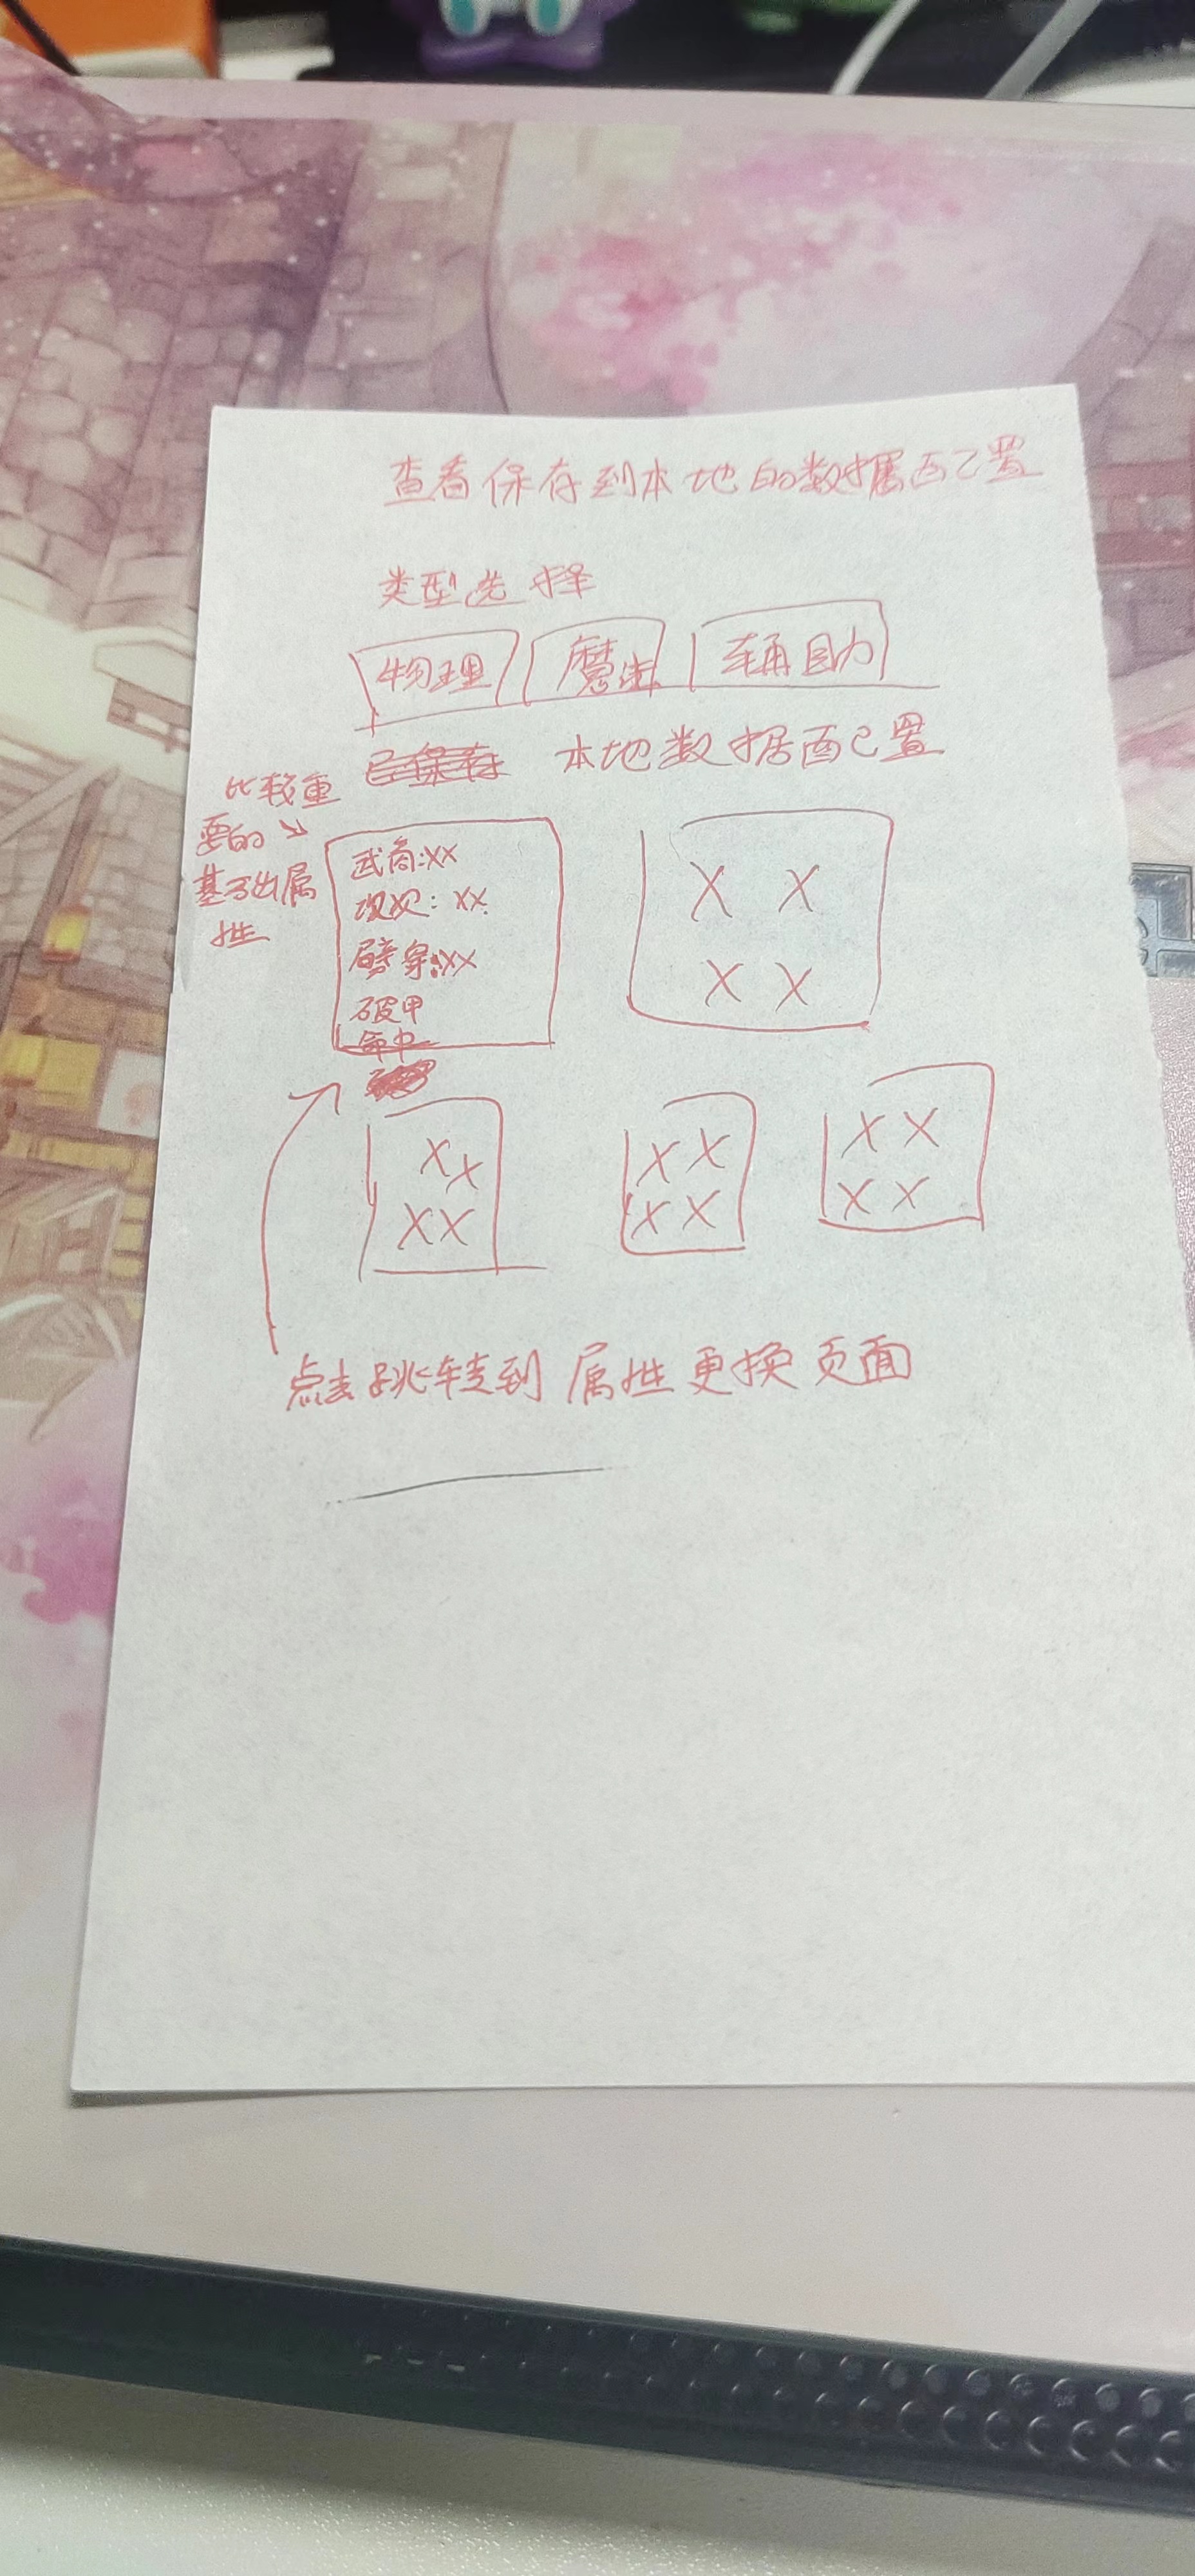 查看保存到本地的数据配置
类型选择
物理 魔法 辅助
本地数据配置
比较重
要的
基础属
性
武高:XX
攻次: XX
劈穿:XX
破甲
命中
X X
X X
X X
X X
X X
X X
X X
X X
点击跳转到 属性更换页面